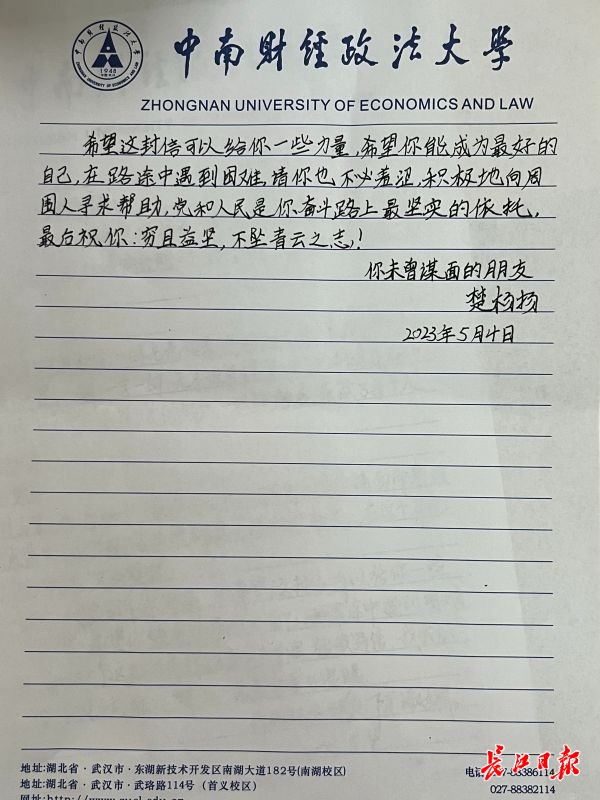 中南财经政法大学
1948
ZHONGNAN UNIVERSITY OF ECONOMICS AND LAW
希望这封信可以给你一些力量，希望你能成为最好的
自己，在路途中遇到困难，请你也不必羞涩，积极地向周
围人寻求帮助，党和人民是你奋斗路上最坚实的依托，
最后祝你：穷且益坚，不坠青云之志！
你未曾谋面的朋友
楚杨扬
2023年5月4日
地址:湖北省·武汉市·东湖新技术开发区南湖大道182号(南湖校区)
地址:湖北省·武汉市·武珞路114号（首义校区）
027-88382114
长江日报